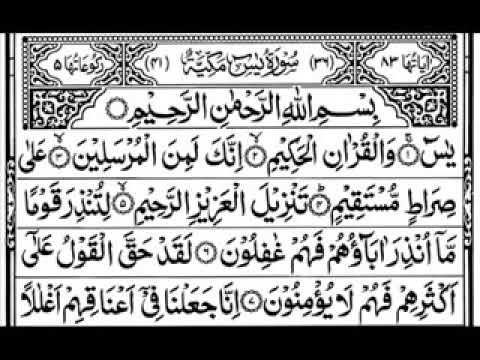 اٰیاتُهَا ٨٣ (٣٦) سُوْرَةُ يٰسٓ مَكِّيَّةٌ (٤١) رُكُوْعَاتُهَا ٥
بِسْمِ اللّٰهِ الرَّحْمٰنِ الرَّحِيْمِ
يٰسٓ ۝١ وَالْقُرْاٰنِ الْحَكِيْمِ ۝٢ اِنَّكَ لَمِنَ الْمُرْسَلِيْنَ ۝٣ عَلٰى
صِرَاطٍ مُّسْتَقِيْمٍ ۝٤ تَنْزِيْلَ الْعَزِيْزِ الرَّحِيْمِ ۝٥ لِتُنْذِرَ قَوْمًا
مَّاۤ اُنْذِرَ اٰبَآؤُهُمْ فَهُمْ غٰفِلُوْنَ ۝٦ لَقَدْ حَقَّ الْقَوْلُ عَلٰۤى
اَكْثَرِهِمْ فَهُمْ لَا يُؤْمِنُوْنَ ۝٧ اِنَّا جَعَلْنَا فِيْۤ اَعْنَاقِهِمْ اَغْلٰلًا